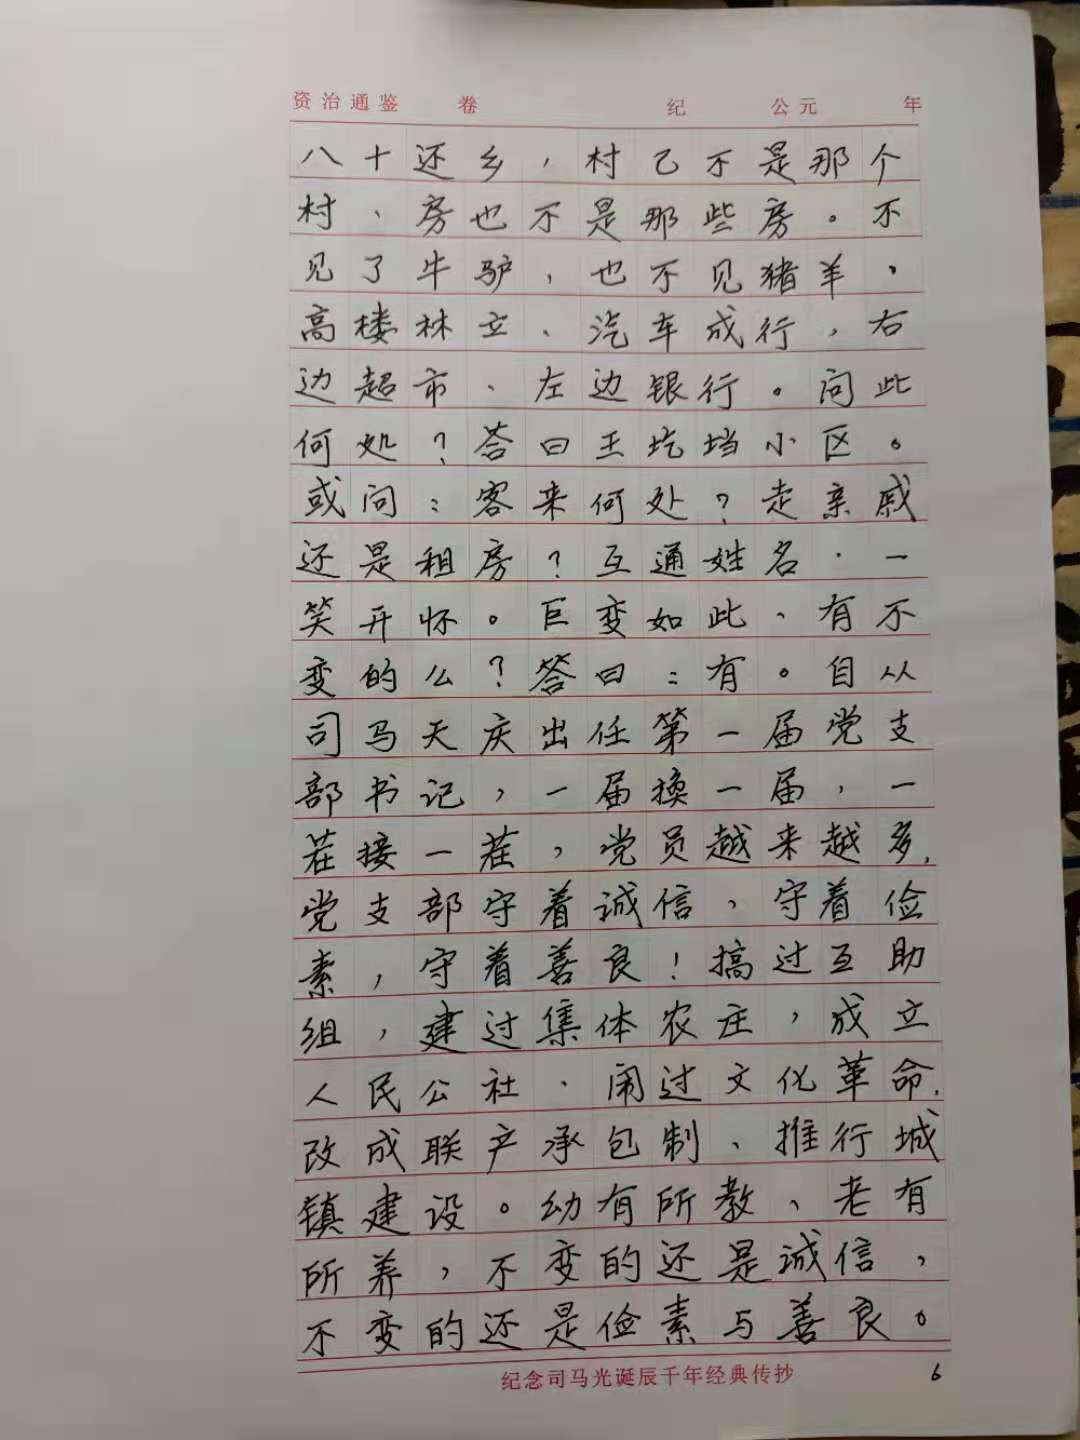 资治通鉴 卷 纪 公元 年
八十还乡，村已不是那个
村、房也不是那些房。不
见了牛驴，也不见猪羊，
高楼林立、汽车成行，右
边超市、左边银行。问此
何处？答曰王圪垱小区。
或问：客来何处？走亲戚
还是租房？互通姓名，一
笑开怀。巨变如此、有不
变的么？答曰：有。自从
司马天庆出任第一届党支
部书记，一届换一届，一
茬接一茬，党员越来越多，
党支部守着诚信，守着俭
素，守着善良！搞过互助
组，建过集体农庄，成立
人民公社、闹过文化革命，
改成联产承包制、推行城
镇建设。幼有所教、老有
所养，不变的还是诚信，
不变的还是俭素与善良。
纪念司马光诞辰千年经典传抄 6